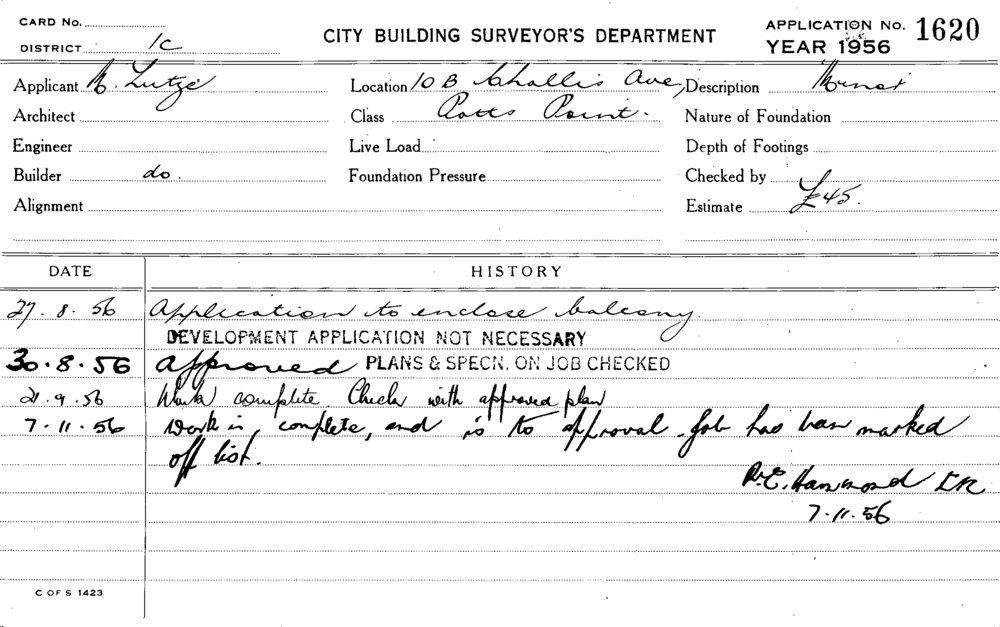 CARD No.
DISTRICT 1C
CITY BUILDING SURVEYOR'S DEPARTMENT
APPLICATION No. 1620
YEAR 1956
Applicant Lutze Location 10B Challis Ave, Description
Architect Class Potts Point. Nature of Foundation
Engineer Live Load Depth of Footings
Builder do. Foundation Pressure Checked by
Alignment Estimate £45.
DATE HISTORY
27.8.56 Application to enclose balcony
DEVELOPMENT APPLICATION NOT NECESSARY
30.8.56 Approved PLANS & SPECN. ON JOB CHECKED
21.9.56 Work complete. Check with approved plan
7.11.56 Work is complete, and is to approval. Job has been marked
off list.
R.E. Hammond
7.11.56
C OF S 1423